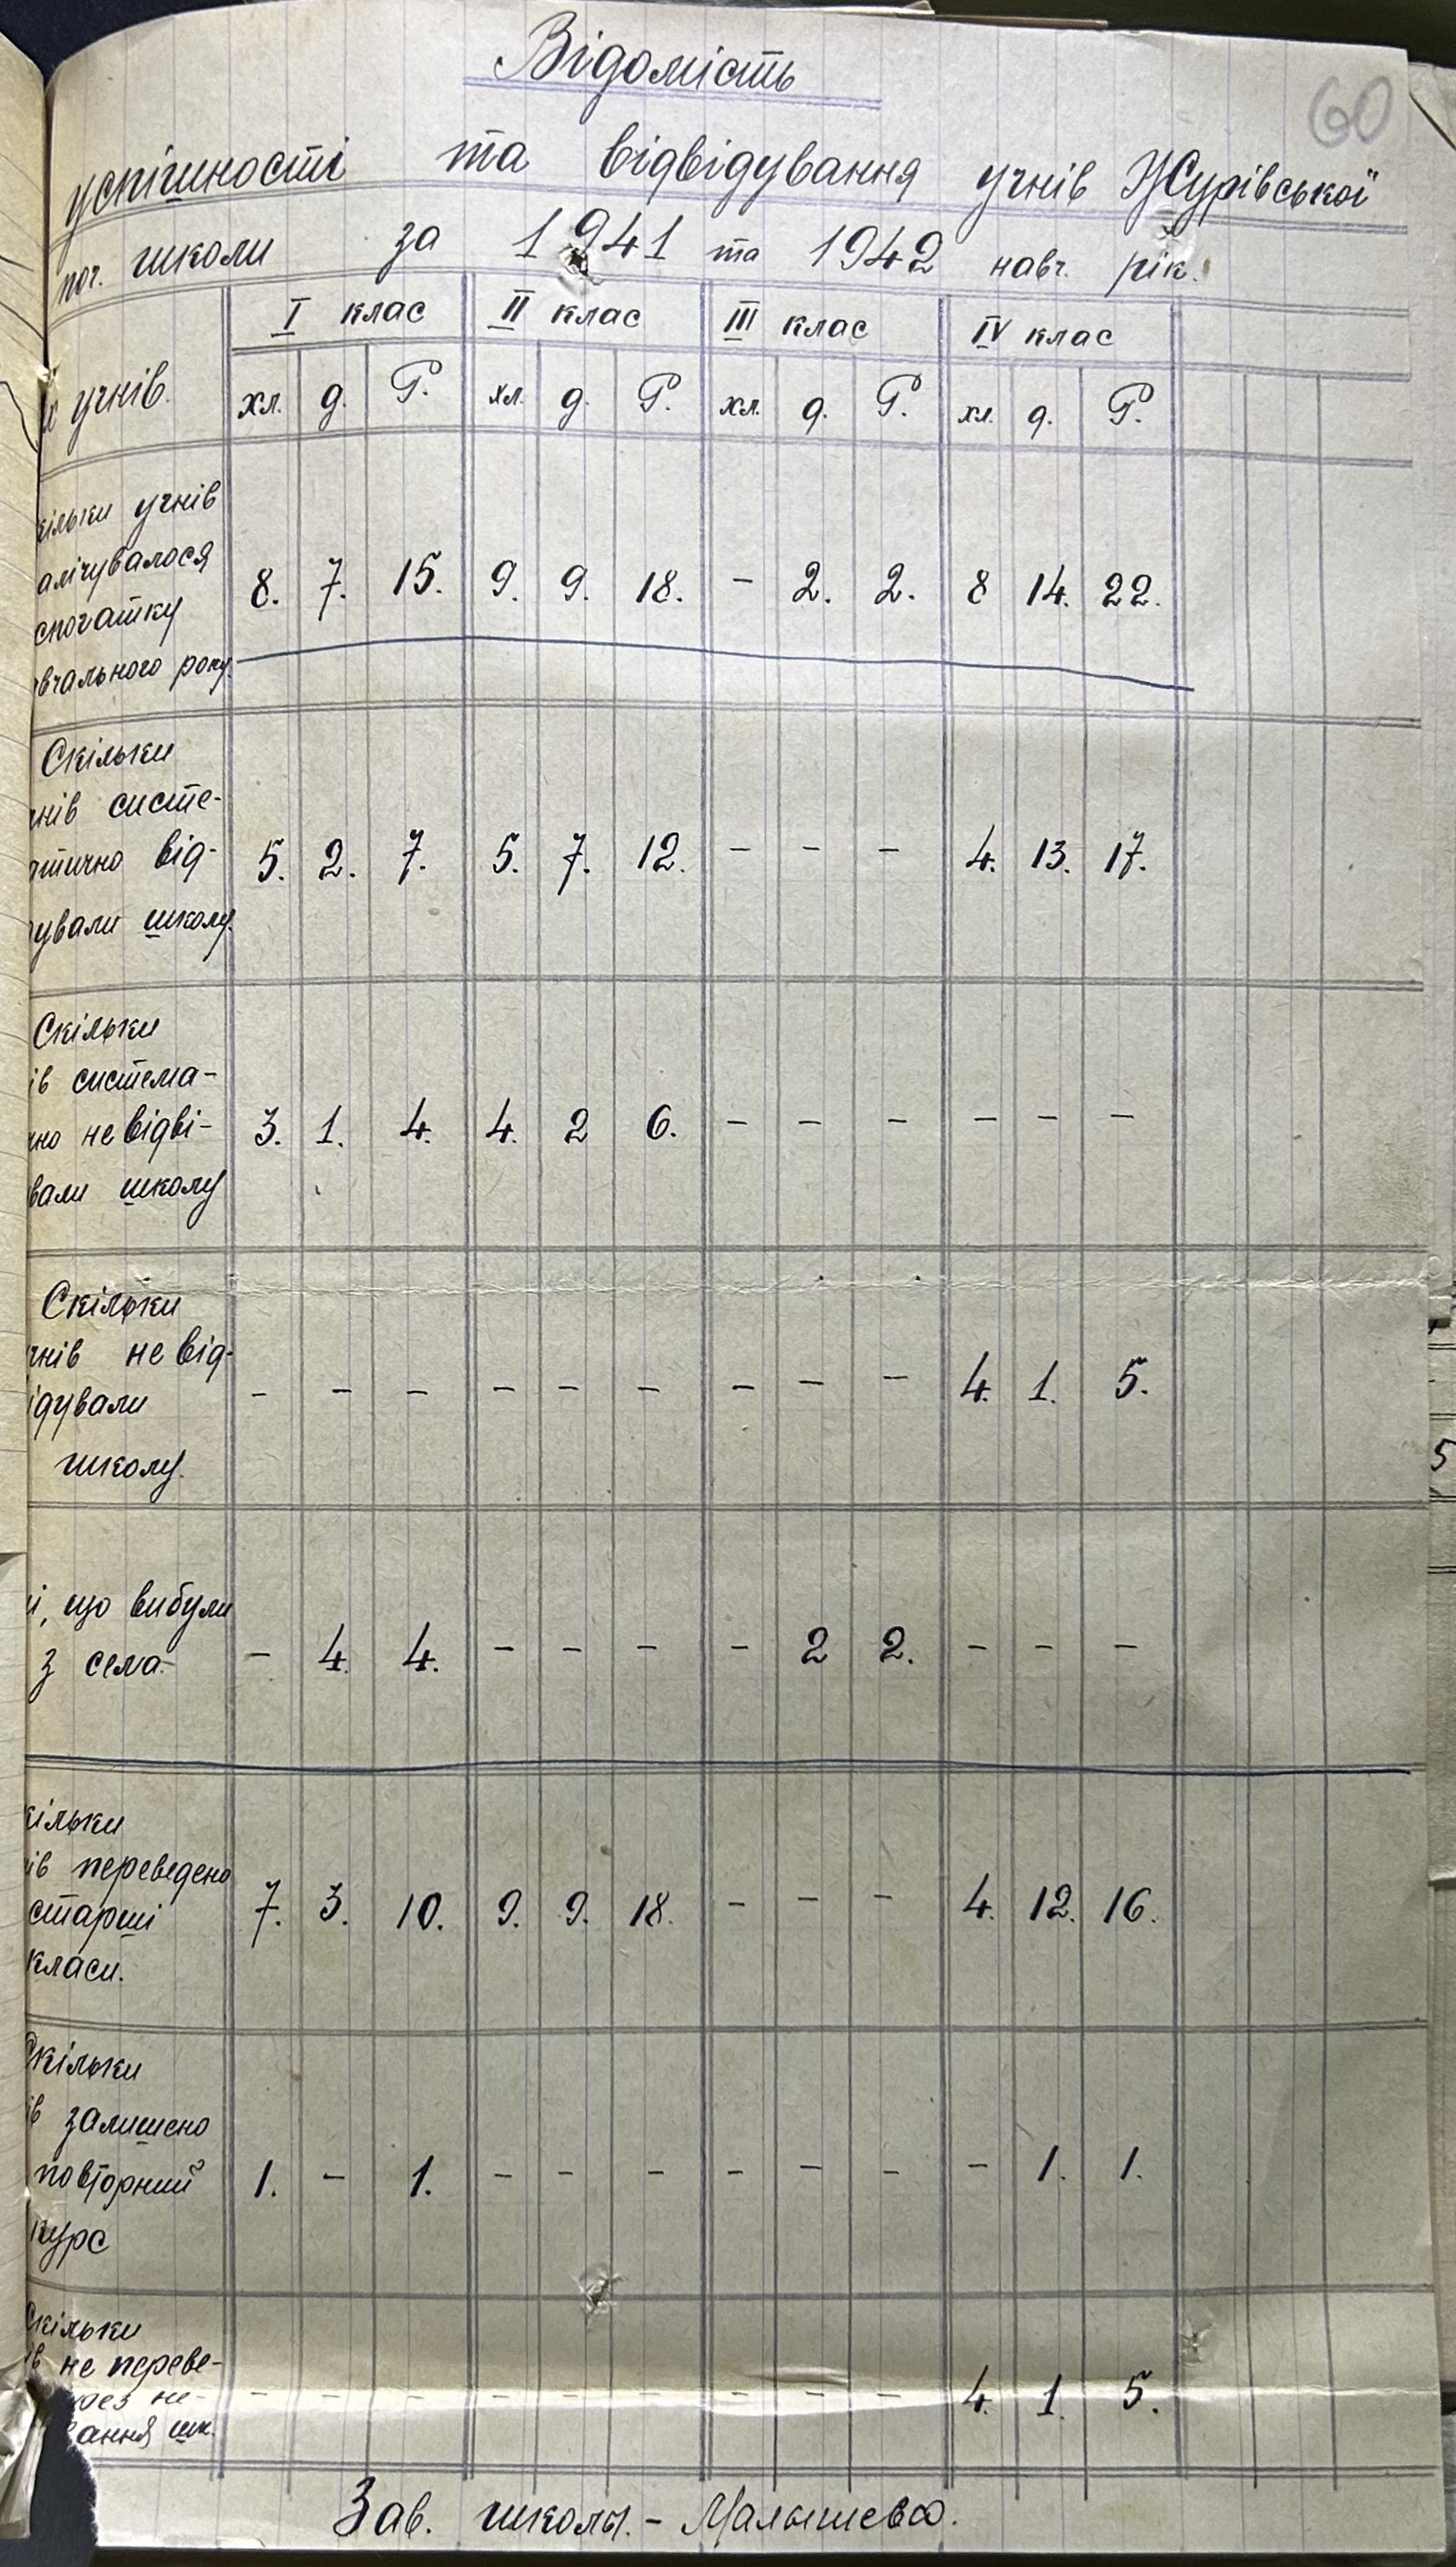 Відомість
60
успішності та відвідування учнів Журівської
поч. школи за 1941 та 1942 навч. рік.
I клас II клас III клас IV клас
х учнів. хл. д. Р. хл. д. Р. хл. д. Р. хл. д. Р.
кільки учнів
алічувалося
спочатку
вчального року.
8. 7. 15. 9. 9. 18. - 2. 2. 8 14. 22.
Скільки
чнів систе-
атично від-
дували школу.
5. 2. 7. 5. 7. 12. - - - 4. 13. 17.
Скільки
ів система-
чно не відві-
вали школу
3. 1. 4. 4. 2 6. - - - - - -
Скільки
чнів не від-
ідували
школу.
- - - - - - - - - 4. 1. 5.
і, що вибули
з села-
- 4. 4. - - - - 2 2. - - -
кільки
ів переведено
старші
класи.
7. 3. 10. 9. 9. 18. - - - 4. 12. 16.
Скільки
ів залишено
повторний
курс
1. - 1. - - - - - - - 1. 1.
Скільки
ів не переве-
рез не-
вання шк.
- - - - - - - - - 4. 1. 5.
Зав. школы. - Малышева.
5